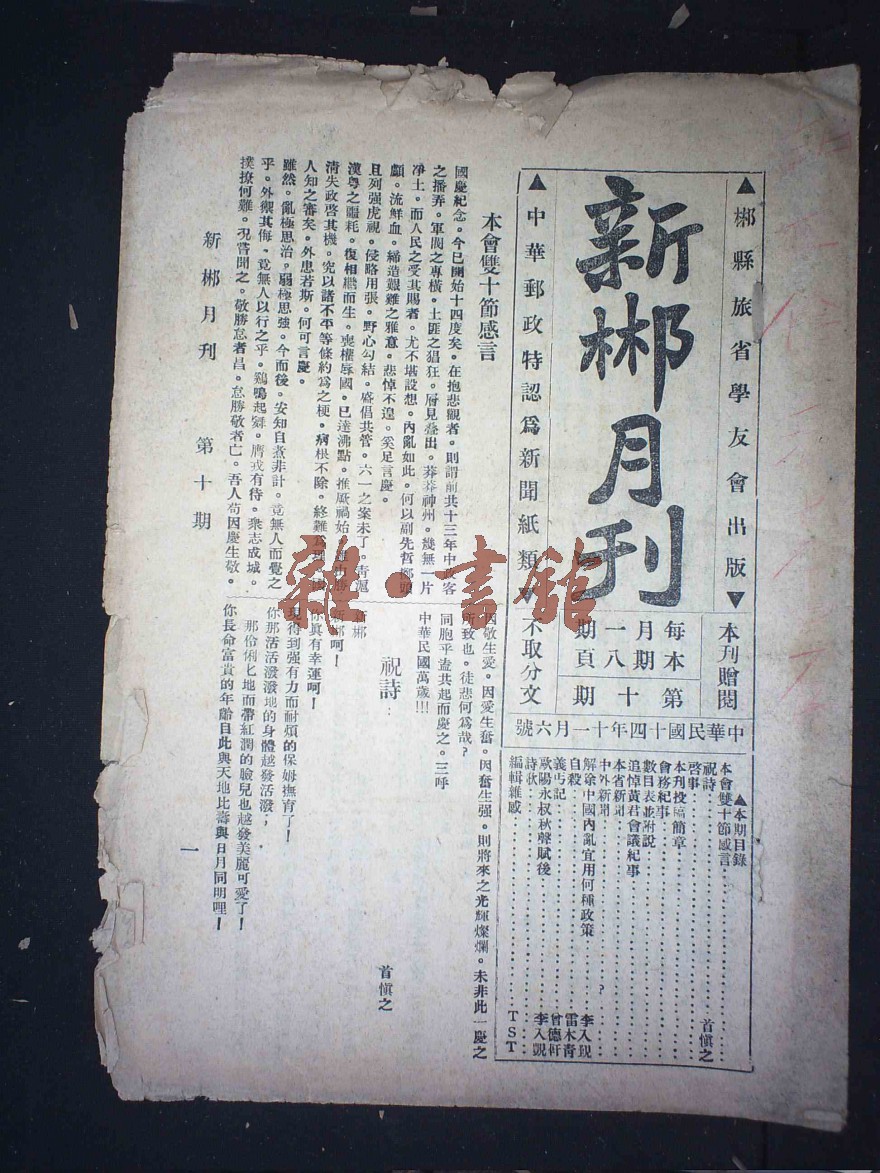 ▲郴縣旅省學友會出版▼
新郴月刊
▲中華郵政特認爲新聞紙類▼
本刊贈閱
不取分文
每月一期
本期八頁
第十期
中華民國十四年十一月六號
▲本期目錄
本會雙十節感言
祝詩 首愼之
啓事
本刊投稿簡章
會務紀事
數目表並附說
追悼黃君會議紀事
本省新聞
中外新聞
解途中國內亂宜用何種政策? 李入覬
自殺 雷木青
義丐記 曾德軒
歐陽永叔秋聲賦後 李入覬
詩秋
編輯雜感 TST
本會雙十節感言
國慶紀念。今已開始十四度矣。在抱悲觀者。則謂前共十三年中政客
之播弄。軍閥之專橫。土匪之猖狂。層見叠出。莽莽神州。幾無一片
净土。而人民之受其賜者。尤不堪設想。內亂如此。何以副先哲擲頭
顱。流鮮血。締造艱難之雅意。悲悼不遑。奚足言慶。
且列强虎視。侵略用張。野心勾結。盛倡共管。六一之案未了。靑滬
漢粤之噩耗。復相繼而生。喪權辱國。已達沸點。推厥禍始。
淸失政啓其機。究以諸不平等條約爲之梗。病根不除。終難
人知之審矣。外患若斯。何可言慶。
雖然。亂極思治。弱極思强。今而後。安知自煮非計。竟無人而覺之
乎。外禦其侮。竟無人以行之乎。鷄鳴起舞。膺或有待。衆志成城。
撲撩何難。况嘗聞之。敬勝怠者昌。怠勝敬者亡。吾人苟因慶生敬。
因敬生愛。因愛生奮。因奮生强。則將來之光輝燦爛。未非此一慶之
所致也。徒悲何爲哉?
同胞乎盍共起而慶之。三呼
中華民國萬歲!!!
祝詩: 首愼之
新郴
新郴呵!
你眞有幸運呵!
現得到强有力而耐煩的保姆撫育了!
你那活活潑潑地的身體越發活潑;
那伶俐匕地而帶紅潤的臉兒也越發美麗可愛了!
你長命富貴的年齡自此與天地比壽與日月同明哩!
新郴月刊 第十期 一
雜·書館